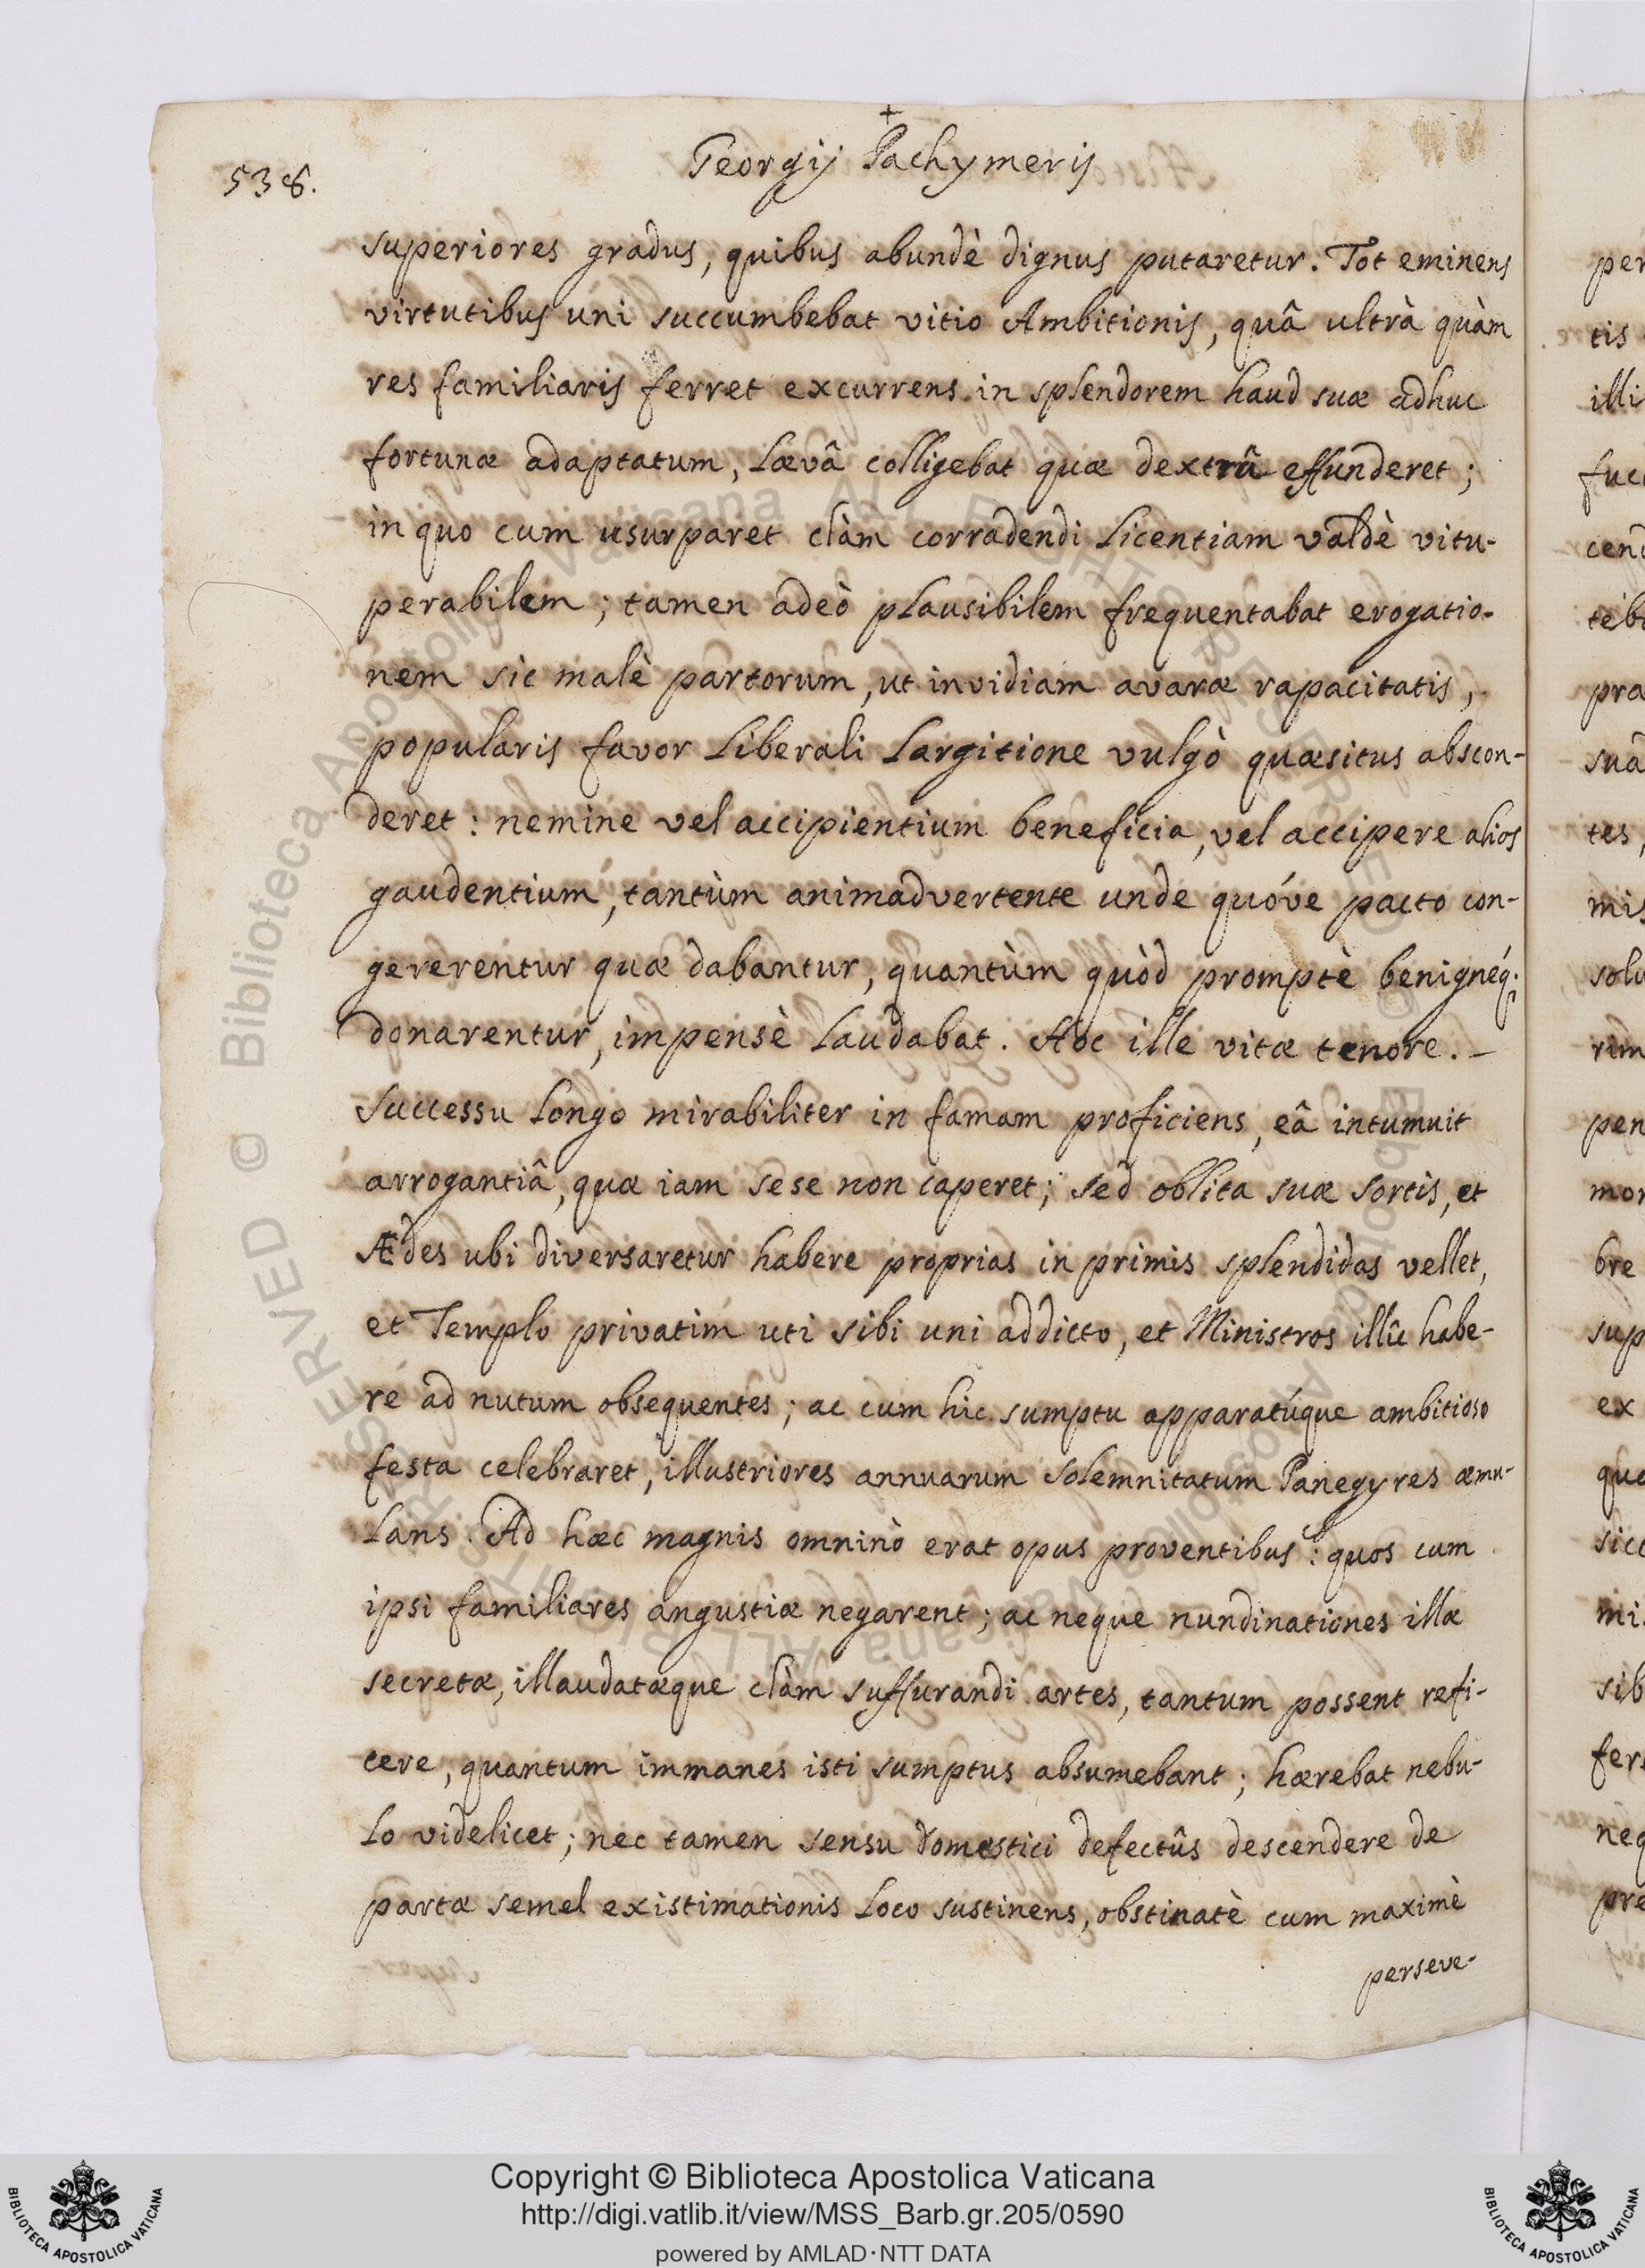 +
538.
Georgij Pachymeris
superiores gradus, quibus abundè dignus putaretur. Tot eminens
virtutibus uni succumbebat vitio Ambitionis, quâ ultrà quàm
res familiaris ferret excurrens in splendorem haud suæ adhuc
fortunæ adaptatum, Lævâ colligebat quæ dextrâ effunderet;
in quo cum usurparet clàm corradendi Licentiam valdè vitu-
perabilem; tamen adeò plausibilem frequentabat erogatio-
nem sic malè partorum, ut invidiam avaræ rapacitatis,
popularis favor Liberali Largitione vulgò quæsitus abscon-
deret: nemine vel accipientium beneficia, vel accipere alios
gaudentium, tantùm animadvertente unde quóve pacto con-
gererentur quæ dabantur, quantùm quòd promptè benignéq;
donarentur, impensè Laudabat. Hoc ille vitæ tenore. –
Successu Longo mirabiliter in famam proficiens, eâ intumuit
arrogantiâ, quæ iam sese non caperet; sed oblita suæ sortis, et
Ædes ubi diversaretur habere proprias in primis splendidas vellet,
et Templo privatim uti sibi uni addicto, et Ministros illîc habe-
re ad nutum obsequentes; ac cum hic sumptu apparatúque ambitioso
festa celebraret, illustriores annuarum Solemnitatum Panegyres æmu-
Lans. Ad hæc magnis omninò erat opus proventibus: quos cum
ipsi familiares angustiæ negarent; ac neque nundinationes illæ
secretæ, illaudatæque clàm suffurandi artes, tantum possent refi-
cere, quantum immanes isti sumptus absumebant; hærebat nebu-
Lo videlicet; nec tamen sensu domestici defectûs descendere de
partæ semel existimationis Loco sustinens, obstinatè cum maximè
perseve-
Copyright © Biblioteca Apostolica Vaticana
http://digi.vatlib.it/view/MSS_Barb.gr.205/0590
powered by AMLAD·NTT DATA
BIBLIOTECA APOSTOLICA VATICANA
BIBLIOTECA APOSTOLICA VATICANA